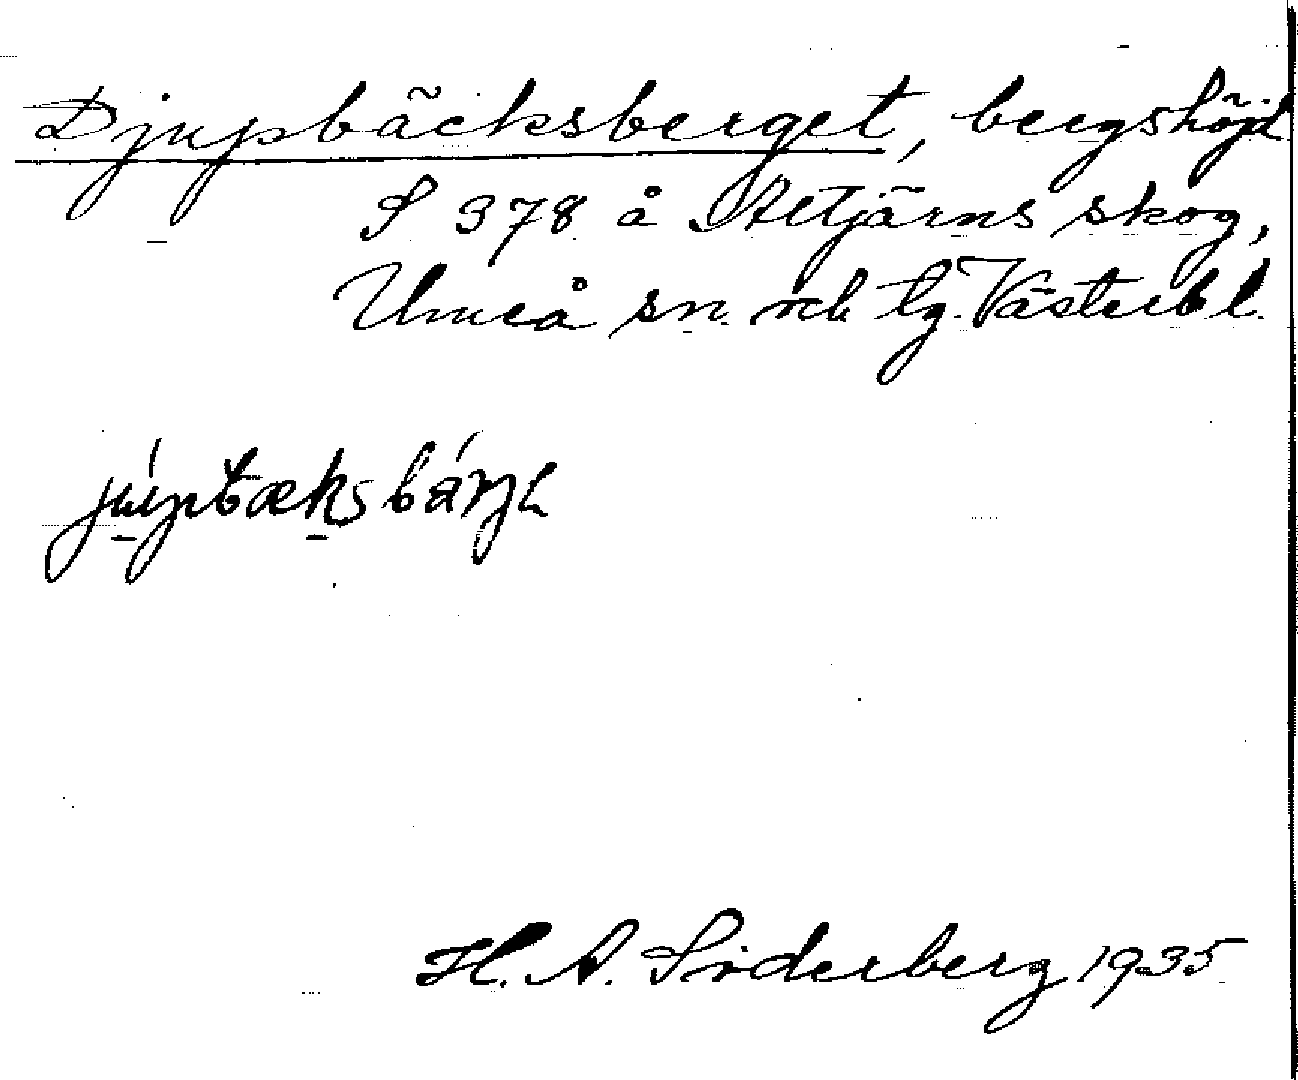 Djupbäcksberget, bergshöjd
S 378 å Åltjärns skog,
Umeå sn. och tg. Västerb l.
H. A. Söderberg 1935